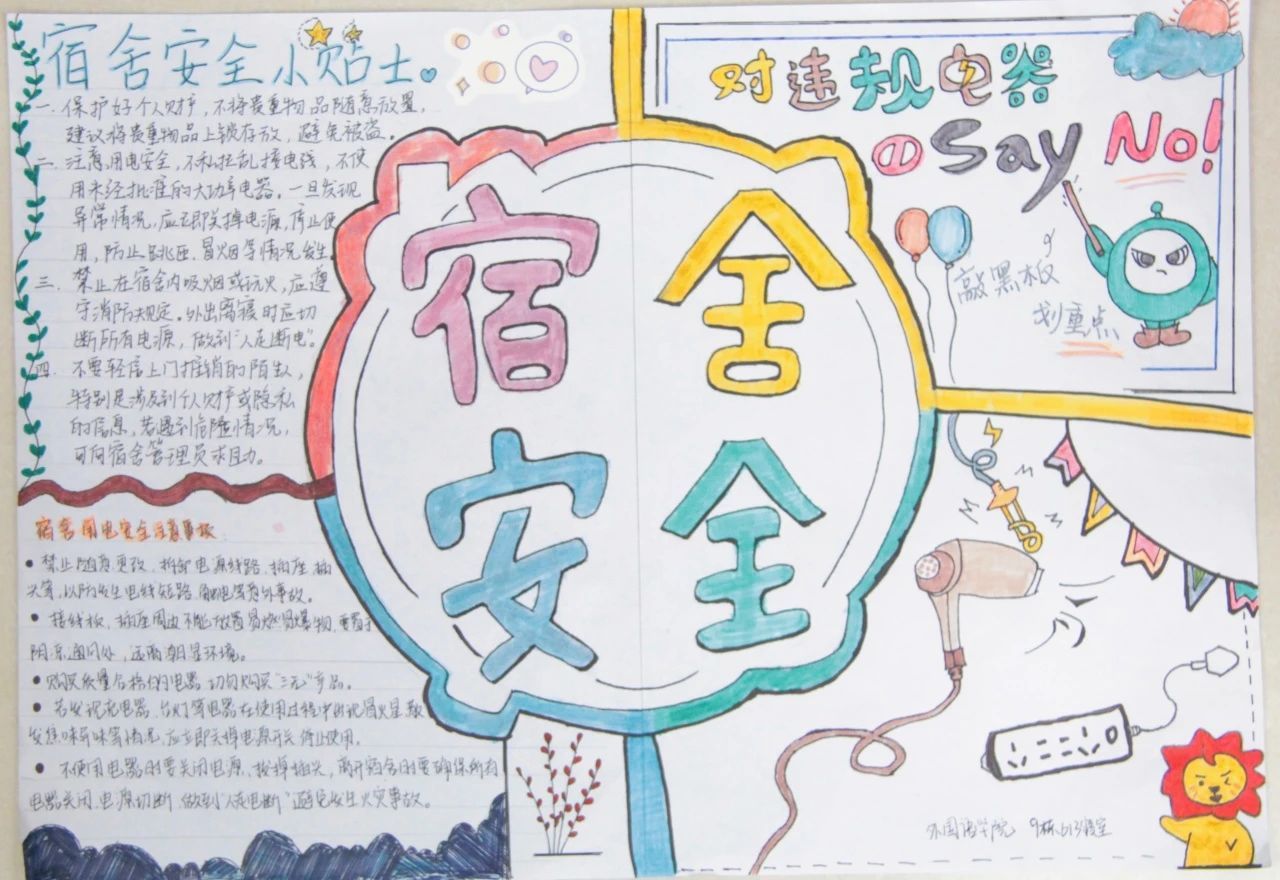 宿舍安全小贴士
一.保护好个人财护,不将贵重物品随意放置,
建议将贵重物品上锁存放,避免被盗。
二.注意用电安全,不私拉乱接电线,不使
用未经批准的大功率电器。一旦发现
异常情况,应立即关掉电源,停止使
用,防止跳压、冒烟等情况发生
三.禁止在宿舍内吸烟或玩火,应遵
守消防规定。外出离寝时应切
断所有电源,做到“人走断电”。
四.不要轻信上门推销的陌生人,
特别是涉及到个人财护或隐私
的信息,若遇到危险情况,
可向宿舍管理员求助。
宿舍用电安全注意事项:
●禁止随意更改、拆卸电源线路、插座、插
头等,以防发生电线短路、触电等意外事故。
●接线板、插座周边不能放置易燃易爆物,要置于
阴凉通风处,远离潮湿环境。
●购买质量合格的电器,切勿购买“三无”产品。
●若发现充电器、台灯等电器在使用过程中出现冒火星、散
发焦味异味等情况,应立即关掉电源开关,停止使用。
●不使用电器时要关闭电源、拔掉插头,离开宿舍时要确保所有
电器关闭、电源切断,做到“人走电断”避免发生火灾事故。
宿舍
安全
对违规电器
Say No!
敲黑板
划重点
外国语学院 9栋613寝室